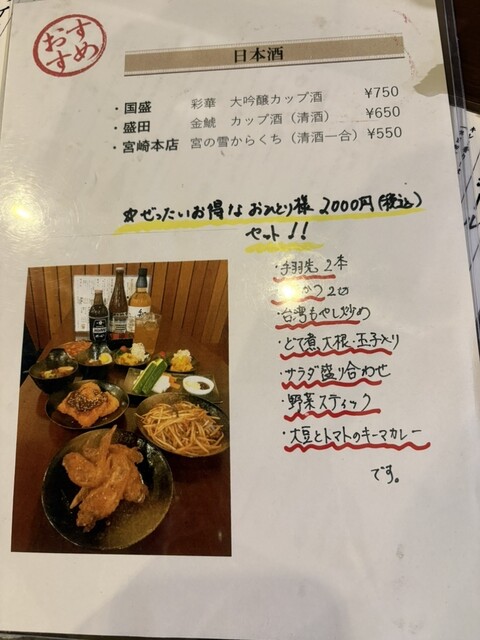 おすすめ
日本酒
・国盛 彩華 大吟醸カップ酒 ¥750
・盛田 金鯱 カップ酒（清酒） ¥650
・宮崎本店 宮の雪からくち（清酒一合） ¥550
☆ぜったいお得な おひとり様 2000円(税込)
セット!!
・手羽先 2本
かつ 2切
・台湾もやし炒め
・どて煮 大根・玉子入り
・サラダ盛り合わせ
・野菜スティック
・大豆とトマトのキーマカレー
です。